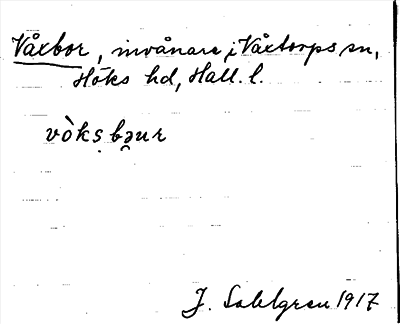 Våxbor, invånare i Våxtorps sn,
Höks hd, Hall. l.
vòkṣbə̯ur
J. Sahlgren 1917